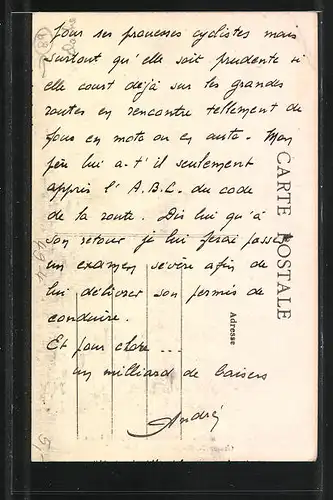 pour ses prouesses cyclistes mais
surtout qu'elle soit prudente si
elle court déjà sur les grandes
routes on rencontre tellement de
fous en moto ou en auto. Mon
père lui a-t'il seulement
appris l'A.B.C. du code
de la route. Dis lui qu'à
son retour je lui ferai passer
un examen sévère afin de
lui délivrer son permis de
conduire.
Et pour clore ...
un milliard de baisers
André
CARTE POSTALE
Adresse